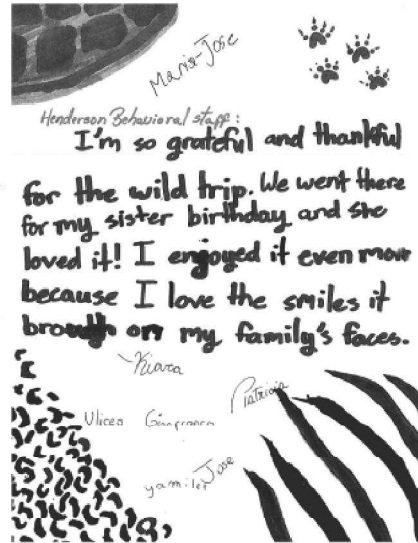 Maria-Jose
Henderson Behavioral staff:
I'm so grateful and thankful
for the wild trip. We went there
for my sister birthday and she
loved it! I enjoyed it even more
because I love the smiles it
brough on my family's faces.
Kiara
Patricia
Ulices Gianfranco
Jose
yamilet